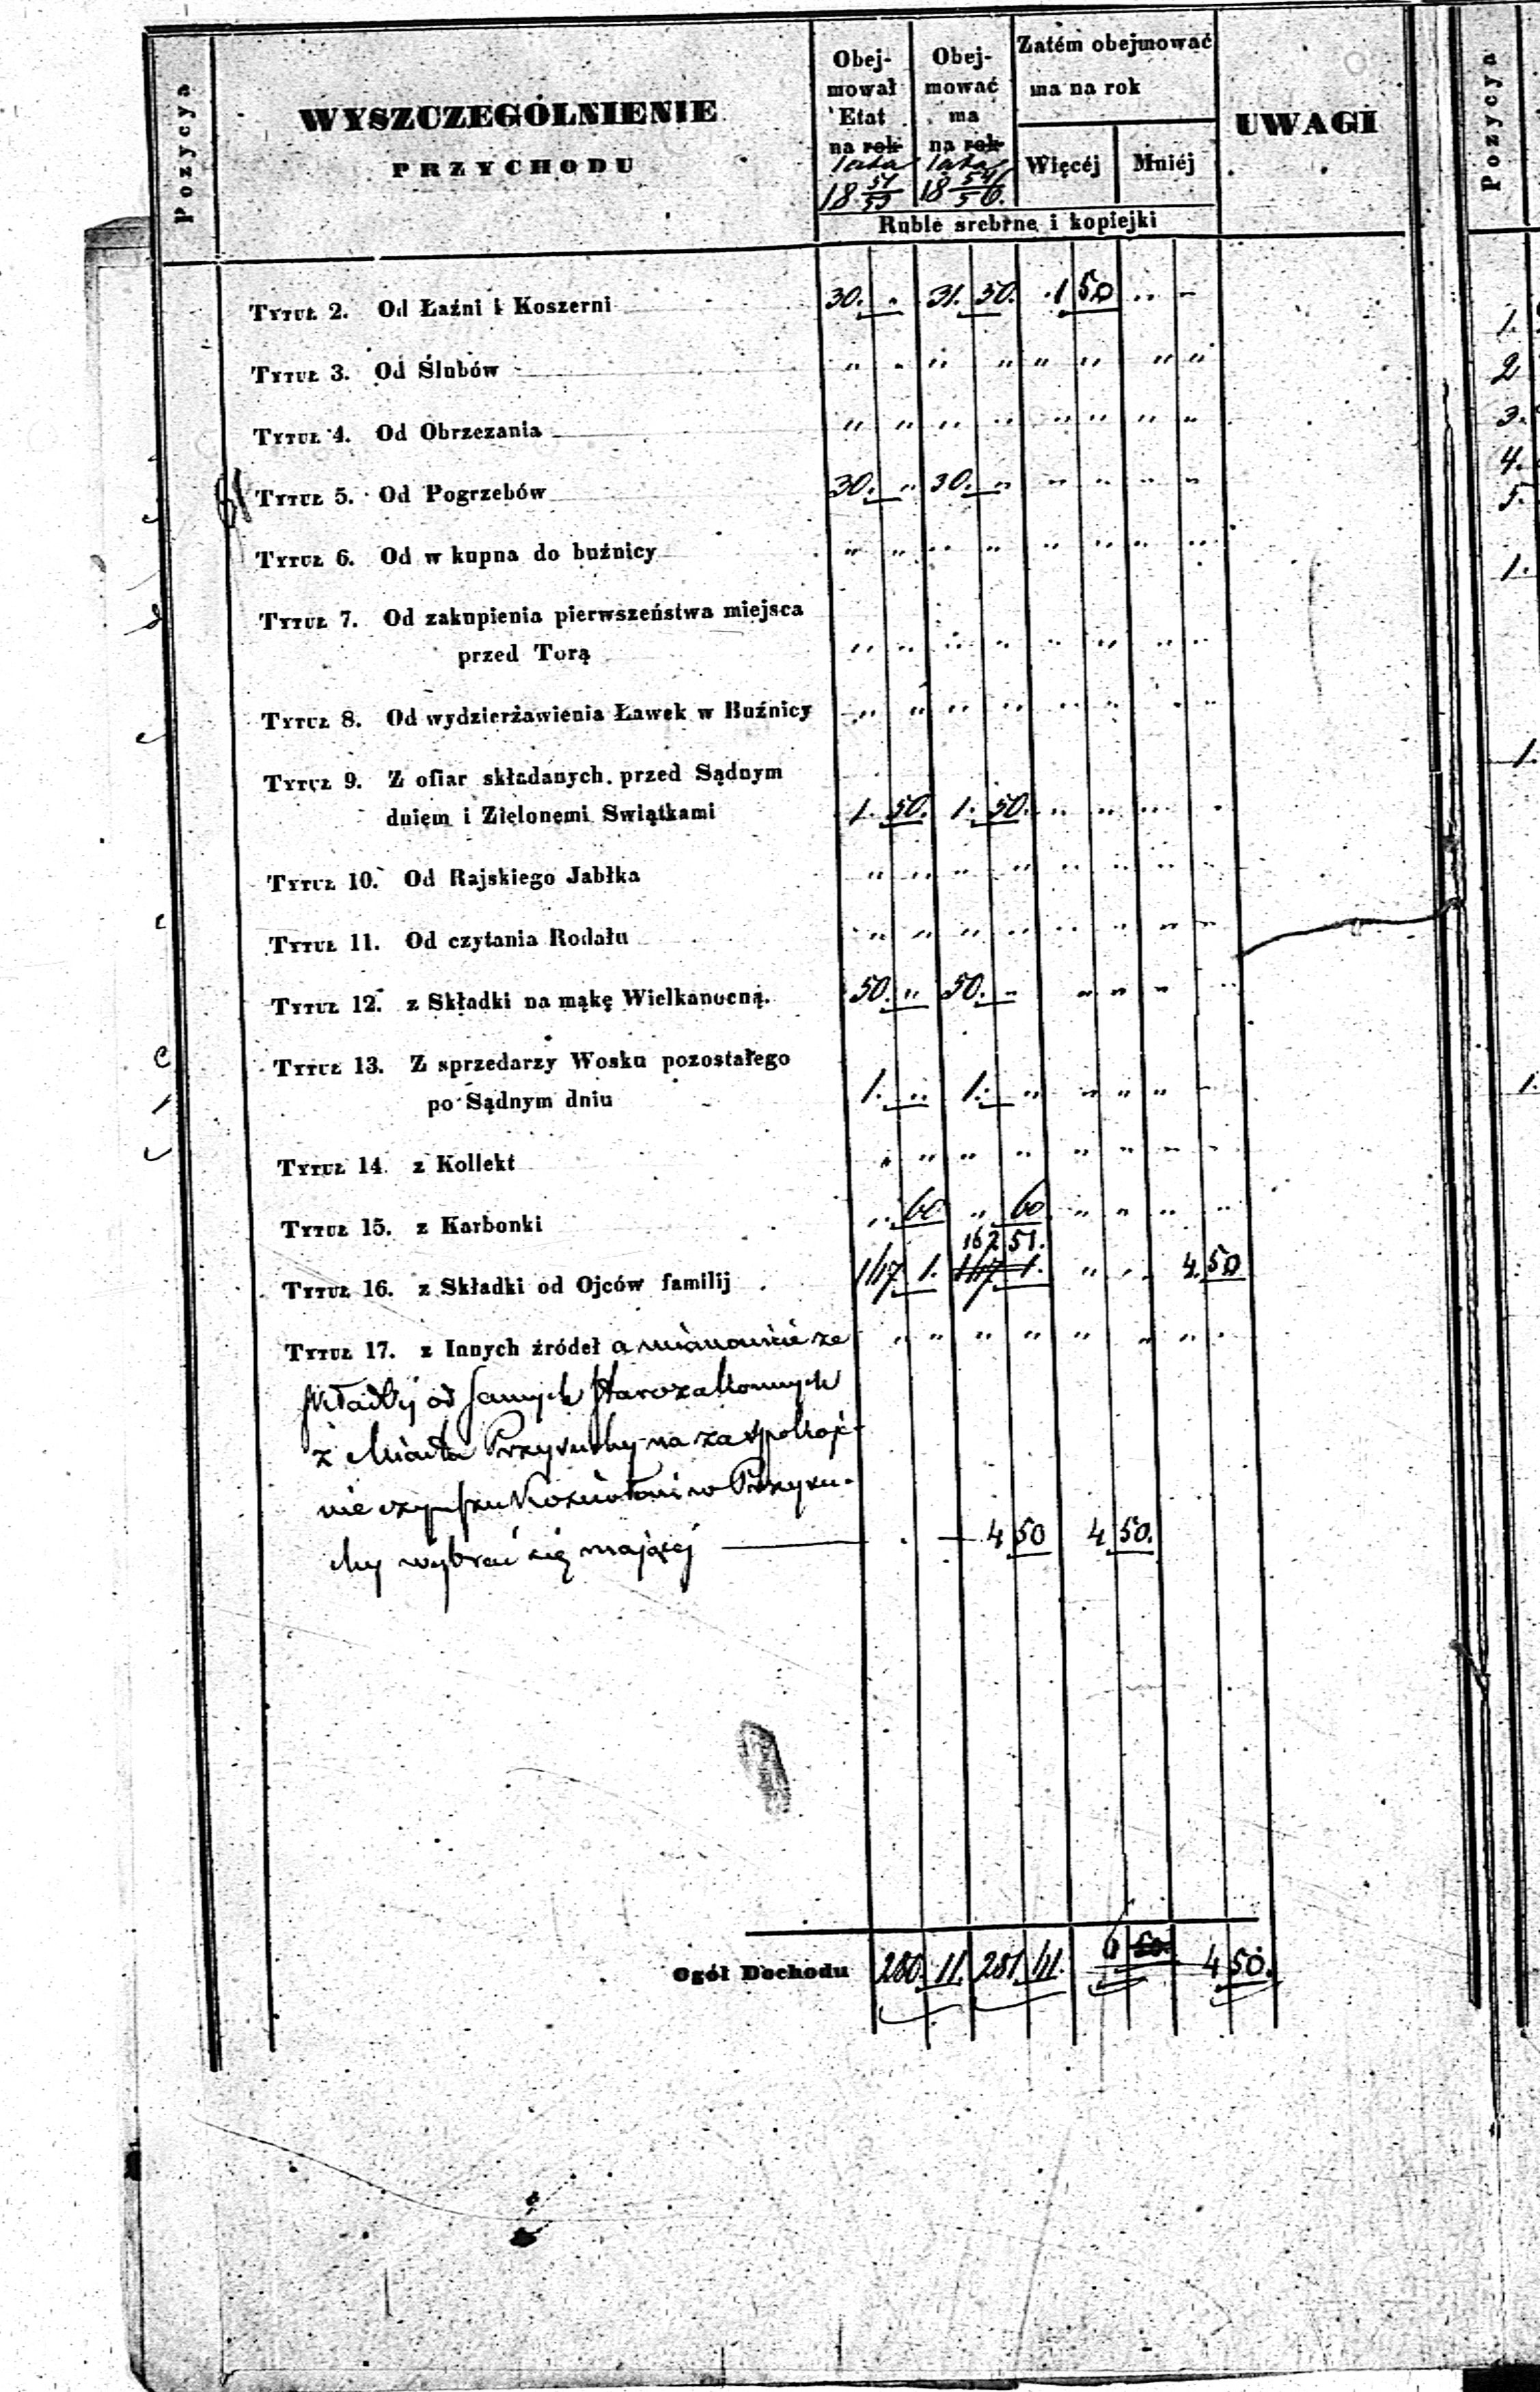 Pozycya
WYSZCZEGÓLNIENIE
PRZYCHODU
Obej-
mował
Etat
na rok
lata
18 51/53
Obej-
mować
ma
na rok
lata
18 54/56.
Zatém obejmować
ma na rok
Więcéj Mniéj
Ruble srebrne i kopiejki
UWAGI
Pozycya
TYTUŁ 2. Od Łaźni i Koszerni 30. „ 31. 50. 1 50 „ „
TYTUŁ 3. Od Ślubów „ „ „ „ „ „ „ „
TYTUŁ 4. Od Obrzezania „ „ „ „ „ „ „ „
TYTUŁ 5. Od Pogrzebów 30. „ 30. „ „ „ „ „
TYTUŁ 6. Od w kupna do buźnicy „ „ „ „ „ „ „ „
TYTUŁ 7. Od zakupienia pierwszeństwa miejsca
przed Torą „ „ „ „ „ „ „ „
TYTUŁ 8. Od wydzierżawienia Ławek w Buźnicy „ „ „ „ „ „ „ „
TYTUŁ 9. Z ofiar składanych przed Sądnym
dniem i Zielonemi Swiątkami 1. 50. 1. 50. „ „ „ „
TYTUŁ 10. Od Rajskiego Jabłka „ „ „ „ „ „ „ „
TYTUŁ 11. Od czytania Rodału „ „ „ „ „ „ „ „
TYTUŁ 12. z Składki na mąkę Wielkanocną. 50. „ 50. „ „ „ „ „
TYTUŁ 13. Z sprzedarzy Wosku pozostałego
po Sądnym dniu 1. „ 1. „ „ „ „ „
TYTUŁ 14. z Kollekt „ „ „ „ „ „ „ „
TYTUŁ 15. z Karbonki „ 60 „ 60 „ „ „ „
162 51.
TYTUŁ 16. z Składki od Ojców familij 167 1. 167 1. „ „ 4. 50
TYTUŁ 17. z Innych źródeł a mianowicie ze „ „ „ „ „ „ „ „
składki od samych Starozakonnych
z Miasta Przysuchy na zaspokoje-
nie czynszu Kościołowi w Przysu-
chy wybrać się mającej — 4 50 4 50.
Ogół Dochodu 280. 11. 281. 11. 6 50 4 50.
1.
2
3.
4.
5.
1.
1.
1.